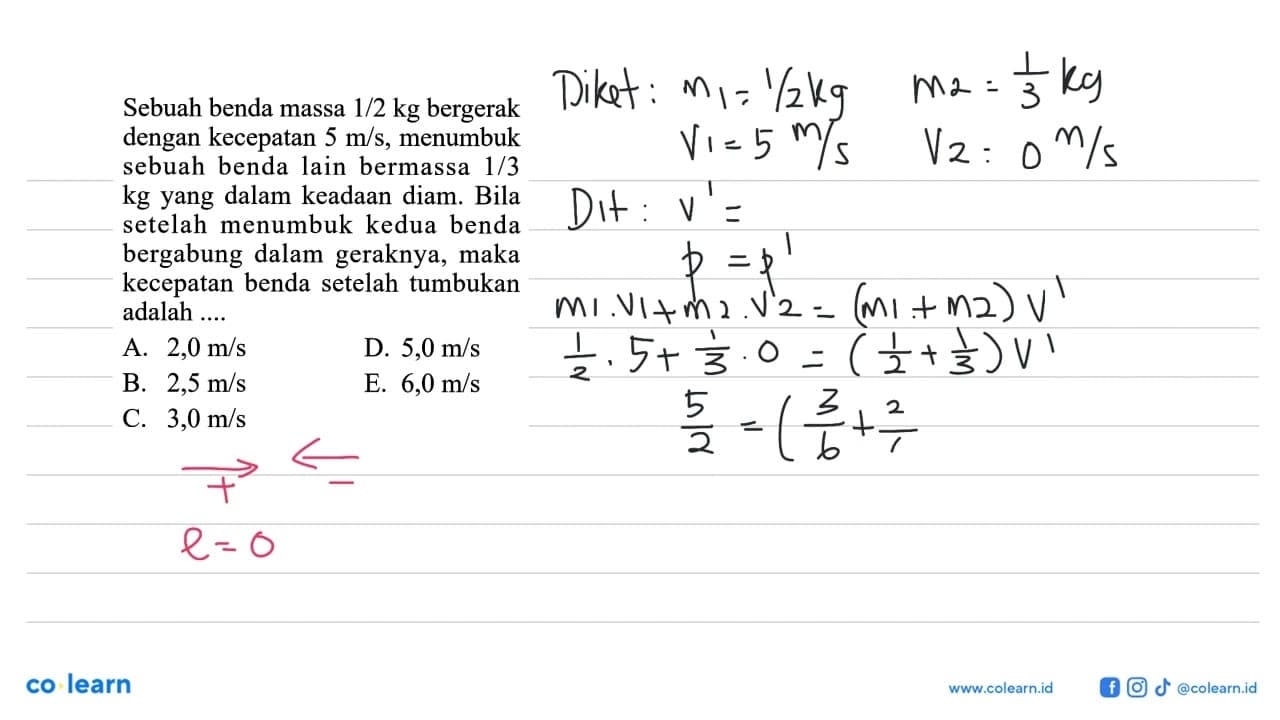 Sebuah benda massa 1/2 kg bergerak
dengan kecepatan 5 m/s, menumbuk
sebuah benda lain bermassa 1/3
kg yang dalam keadaan diam. Bila
setelah menumbuk kedua benda
bergabung dalam geraknya, maka
kecepatan benda setelah tumbukan
adalah ....
A. 2,0 m/s D. 5,0 m/s
B. 2,5 m/s E. 6,0 m/s
C. 3,0 m/s
+ -
e = 0
Diket : m1 = 1/2 kg m2 = 1/3 kg
V1 = 5 m/s V2 : 0 m/s
Dit : v' =
p = p'
m1 . V1 + m2 . V2 = (m1 + m2) V'
1/2 . 5 + 1/3 . 0 = (1/2 + 1/3) V'
5/2 = (3/6 + 2/
co learn
www.colearn.id @colearn.id